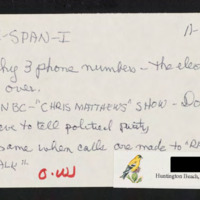 -SPAN-I
hy 3 phone numbers - the elec
over.
NBC-"CHRIS MATTHEWS" SHOW - Do
ve to tell political party,
same when calls are made to "RA
ALK"
Huntington Beach,